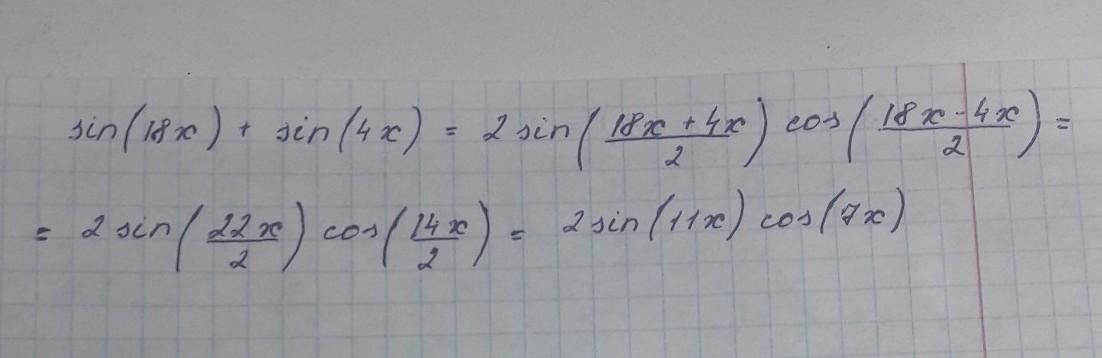 sin(18x) + sin(4x) = 2 sin((18x + 4x)/2) cos((18x - 4x)/2) =
= 2 sin(22x/2) cos(14x/2) = 2 sin(11x) cos(7x)